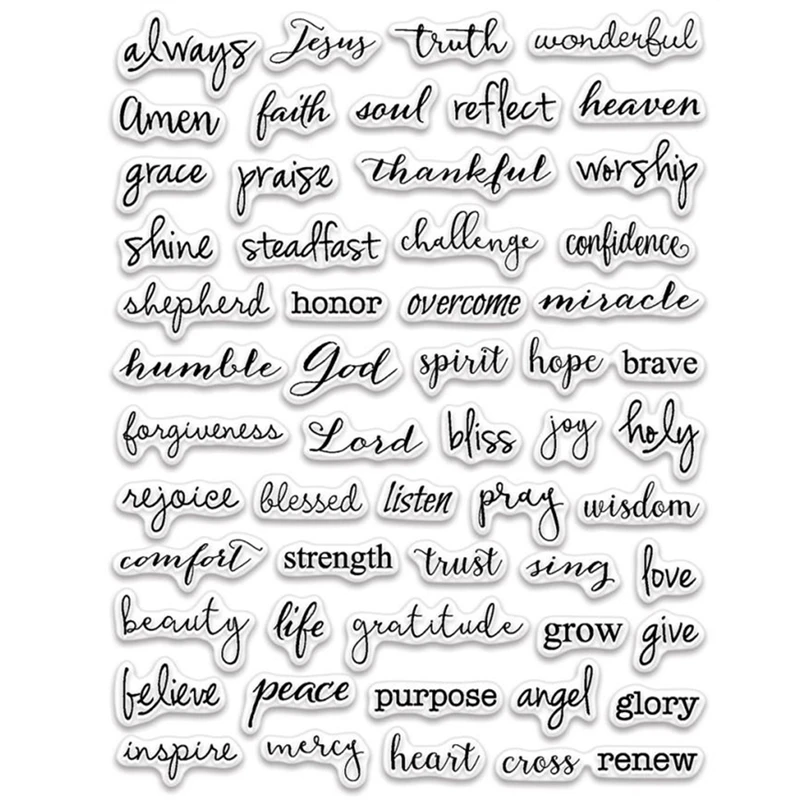 always Jesus truth wonderful
Amen faith soul reflect heaven
grace praise thankful worship
shine steadfast challenge confidence
shepherd honor overcome miracle
humble God spirit hope brave
forgiveness Lord bliss joy holy
rejoice blessed listen pray wisdom
comfort strength trust sing love
beauty life gratitude grow give
believe peace purpose angel glory
inspire mercy heart cross renew